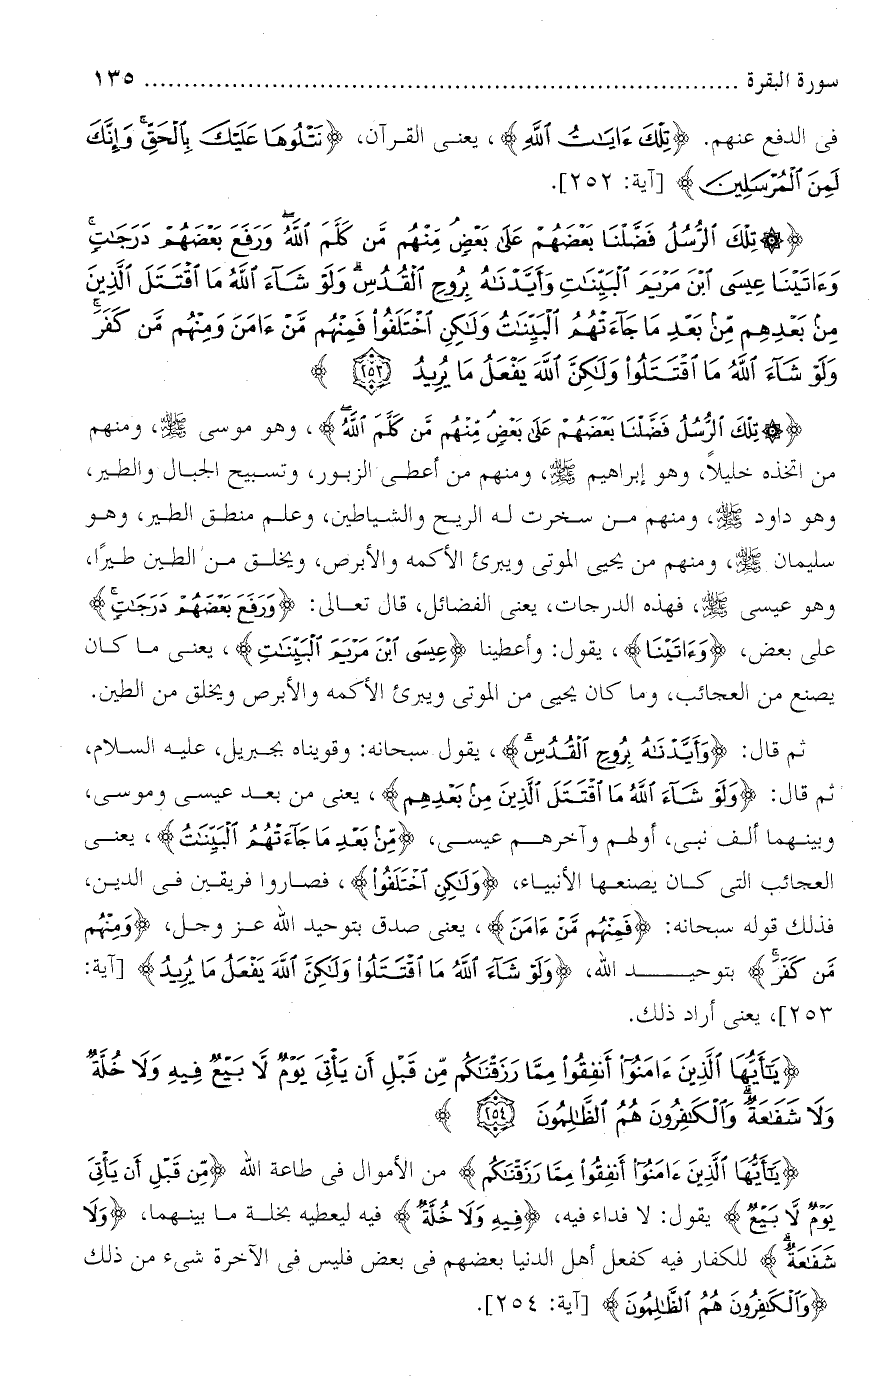 سورة البقرة ........................................................................ ١٣٥
فى الدفع عنهم. ﴿تِلْكَ ءَايَـٰتُ ٱللَّهِ﴾، يعنـى القـرآن، ﴿نَتْلُوهَا عَلَيْكَ بِٱلْحَقِّ ۚ وَإِنَّكَ
لَمِنَ ٱلْمُرْسَلِينَ﴾ [آية: ٢٥٢].
﴿۞ تِلْكَ ٱلرُّسُلُ فَضَّلْنَا بَعْضَهُمْ عَلَىٰ بَعْضٍ ۘ مِّنْهُم مَّن كَلَّمَ ٱللَّهُ ۖ وَرَفَعَ بَعْضَهُمْ دَرَجَـٰتٍ ۚ
وَءَاتَيْنَا عِيسَى ٱبْنَ مَرْيَمَ ٱلْبَيِّنَـٰتِ وَأَيَّدْنَـٰهُ بِرُوحِ ٱلْقُدُسِ ۗ وَلَوْ شَآءَ ٱللَّهُ مَا ٱقْتَتَلَ ٱلَّذِينَ
مِنۢ بَعْدِهِم مِّنۢ بَعْدِ مَا جَآءَتْهُمُ ٱلْبَيِّنَـٰتُ وَلَـٰكِنِ ٱخْتَلَفُوا۟ فَمِنْهُم مَّنْ ءَامَنَ وَمِنْهُم مَّن كَفَرَ ۚ
وَلَوْ شَآءَ ٱللَّهُ مَا ٱقْتَتَلُوا۟ وَلَـٰكِنَّ ٱللَّهَ يَفْعَلُ مَا يُرِيدُ ٢٥٣ ﴾
﴿۞ تِلْكَ ٱلرُّسُلُ فَضَّلْنَا بَعْضَهُمْ عَلَىٰ بَعْضٍ ۘ مِّنْهُم مَّن كَلَّمَ ٱللَّهُ ۖ﴾، وهو موسى ﷺ، ومنهم
من اتخذه خليلاً، وهو إبراهيم ﷺ، ومنهم من أعطـى الزبـور، وتسـبيح الجبـال والطـير،
وهو داود ﷺ، ومنهم مـن سـخرت لـه الريـح والشـياطين، وعلـم منطـق الطـير، وهـو
سليمان ﷺ، ومنهم من يحيى الموتى ويبرئ الأكمه والأبرص، ويخلـق مـن الطـين طـيرًا،
وهو عيسى ﷺ، فهذه الدرجات، يعنى الفضائل، قال تعـالى: ﴿وَرَفَعَ بَعْضَهُمْ دَرَجَـٰتٍ ۚ﴾
على بعض، ﴿وَءَاتَيْنَا﴾، يقول: وأعطينا ﴿عِيسَى ٱبْنَ مَرْيَمَ ٱلْبَيِّنَـٰتِ﴾، يعنـى مـا كـان
يصنع من العجائب، وما كان يحيى من الموتى ويبرئ الأكمه والأبرص ويخلق من الطين.
ثم قال: ﴿وَأَيَّدْنَـٰهُ بِرُوحِ ٱلْقُدُسِ ۗ﴾، يقول سبحانه: وقويناه بجبريل، عليـه السـلام،
ثم قال: ﴿وَلَوْ شَآءَ ٱللَّهُ مَا ٱقْتَتَلَ ٱلَّذِينَ مِنۢ بَعْدِهِم﴾، يعنى من بعـد عيسـى وموسـى،
وبينـهما ألـف نبـى، أولهـم وآخرهـم عيسـى، ﴿مِّنۢ بَعْدِ مَا جَآءَتْهُمُ ٱلْبَيِّنَـٰتُ﴾، يعنـى
العجائب التى كـان يصنعـها الأنبيـاء، ﴿وَلَـٰكِنِ ٱخْتَلَفُوا۟﴾، فصـاروا فريقـين فـى الديـن،
فذلك قوله سبحانه: ﴿فَمِنْهُم مَّنْ ءَامَنَ﴾، يعنى صدق بتوحيد الله عـز وجـل، ﴿وَمِنْهُم
مَّن كَفَرَ ۚ﴾ بتوحيـــد الله، ﴿وَلَوْ شَآءَ ٱللَّهُ مَا ٱقْتَتَلُوا۟ وَلَـٰكِنَّ ٱللَّهَ يَفْعَلُ مَا يُرِيدُ﴾ [آية:
٢٥٣]، يعنى أراد ذلك.
﴿يَـٰٓأَيُّهَا ٱلَّذِينَ ءَامَنُوٓا۟ أَنفِقُوا۟ مِمَّا رَزَقْنَـٰكُم مِّن قَبْلِ أَن يَأْتِىَ يَوْمٌ لَّا بَيْعٌ فِيهِ وَلَا خُلَّةٌ
وَلَا شَفَـٰعَةٌ ۗ وَٱلْكَـٰفِرُونَ هُمُ ٱلظَّـٰلِمُونَ ٢٥٤ ﴾
﴿يَـٰٓأَيُّهَا ٱلَّذِينَ ءَامَنُوٓا۟ أَنفِقُوا۟ مِمَّا رَزَقْنَـٰكُم﴾ من الأموال فى طاعة الله ﴿مِّن قَبْلِ أَن يَأْتِىَ
يَوْمٌ لَّا بَيْعٌ﴾ يقول: لا فداء فيه، ﴿فِيهِ وَلَا خُلَّةٌ﴾ فيه ليعطيه بخلـة مـا بينـهما، ﴿وَلَا
شَفَـٰعَةٌ ۗ﴾ للكفار فيه كفعل أهل الدنيا بعضهم فى بعض فليس فى الآخرة شىء من ذلك
﴿وَٱلْكَـٰفِرُونَ هُمُ ٱلظَّـٰلِمُونَ﴾ [آية: ٢٥٤].